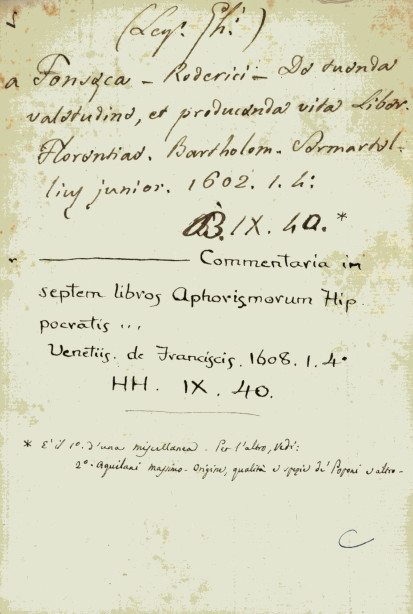 (Leg. Ph:)
a Fonseca - Roderici - De tuenda
valetudine, et producenda vita Liber.
Florentiae. Bartholom. Sermartel-
lius junior. 1602. 1. 4:
B. IX. 40. *
Commentaria in
septem libros Aphorismorum Hip
pocratis ...
Venetiis. de Franciscis. 1608. 1. 4°
HH. IX. 40.
* E' il 1°. d'una miscellanea - Per l'altro, Vedi:
2°. Aquilani massimo - Origine, qualità e spezie de' Poponi e altro -
C